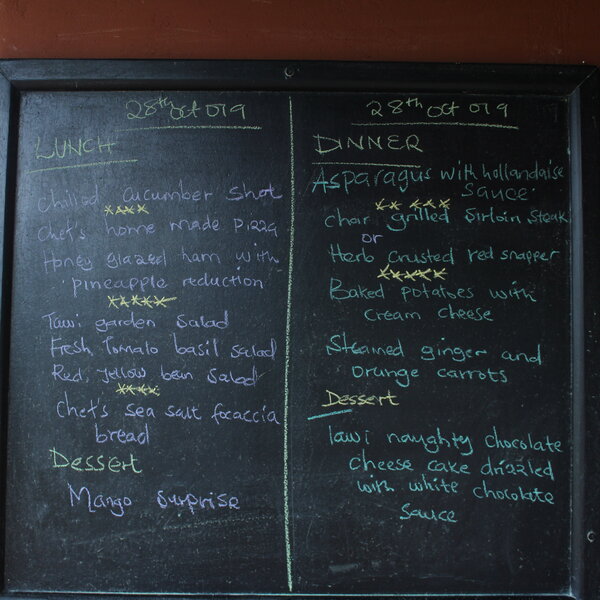 28th Oct 019
LUNCH
Chilled cucumber shot
xxxx
Chef's home made Pizza
Honey glazed ham with
pineapple reduction
xxxxx
Tawi garden salad
Fresh Tomato basil salad
Red, yellow bean salad
xxxx
Chef's sea salt focaccia
bread
Dessert
Mango Surprise
28th Oct 019
DINNER
Asparagus with hollandaise
sauce.
xx xxx
Char grilled Sirloin Steak
or
Herb Crusted red snapper
xxxxx
Baked potatoes with
cream cheese
Steamed ginger and
orange carrots
Dessert
Tawi naughty chocolate
cheese cake drizzled
with white chocolate
sauce